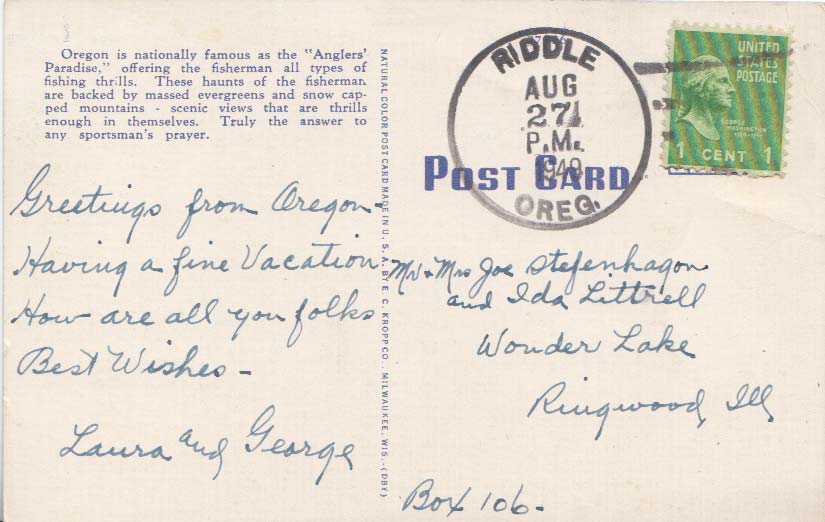 Oregon is nationally famous as the "Anglers'
Paradise," offering the fisherman all types of
fishing thrills. These haunts of the fisherman
are backed by massed evergreens and snow cap-
ped mountains - scenic views that are thrills
enough in themselves. Truly the answer to
any sportsman's prayer.
Greetings from Oregon-
Having a fine Vacation
How are all you folks
Best Wishes -
Laura and George
NATURAL COLOR POST CARD MADE IN U. S. A. BY E. C. KROPP CO., MILWAUKEE, WIS.-(DBY)
POST CARD
RIDDLE
AUG
271
P.M.
OREG.
UNITED
STATES
POSTAGE
GEORGE
WASHINGTON
1 CENT 1
Mr + Mrs Joe Stefenhagon
and Ida Littrell
Wonder Lake
Ringwood, Ill
Box 106-